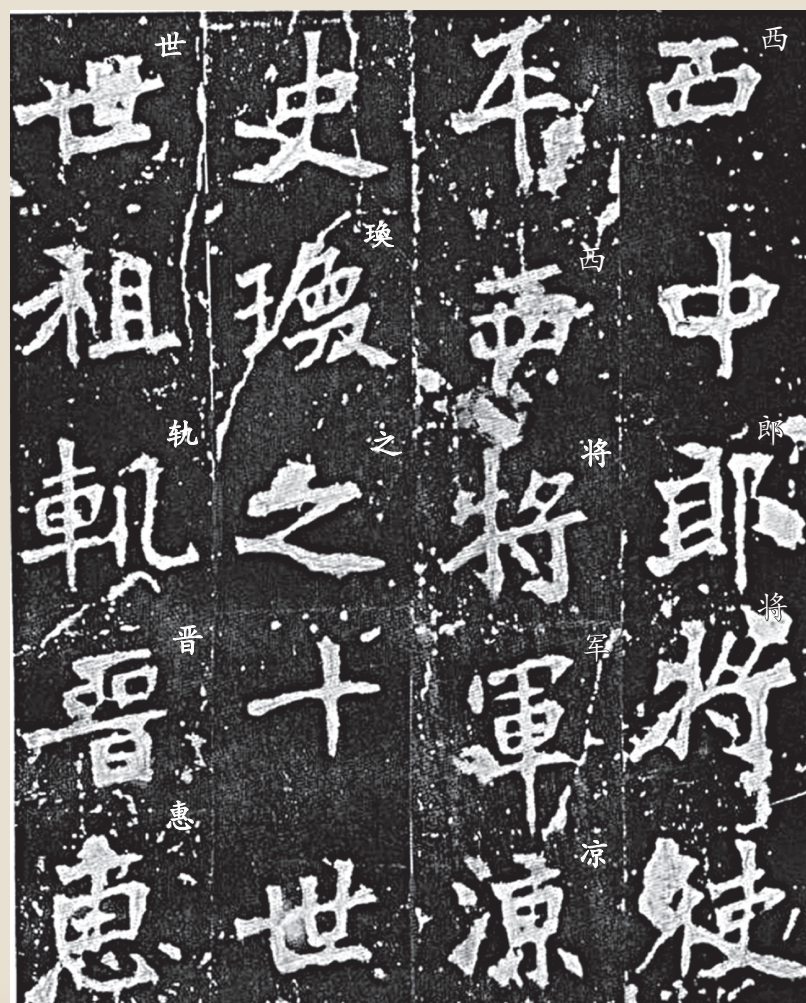 西中郎將使
西郎将
平西將軍涼
西将军凉
史瑍之十世
瑍之
世祖軌晉惠
世轨晋惠